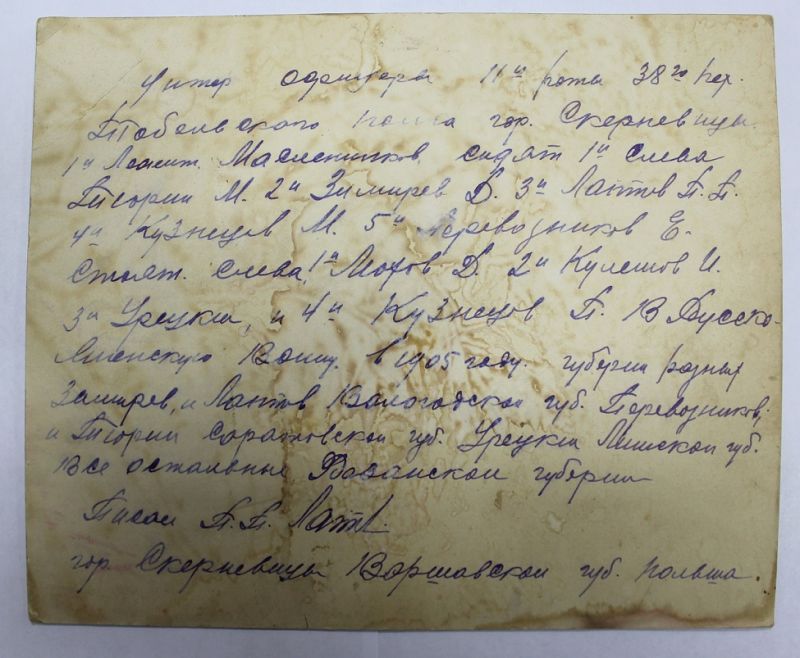 Унтер офицеры 11ой роты 38го пех.
Тобольского полка гор. Скерневицы.
1й Лейт. Масленников, сидят 1й слева
М. 2й Зимирев Д. 3й Лаптов П.П.
4й Кузнецов М. 5й Перевозников Е.
Стоят. слева, 1й Мохов Д. 2й Кулешов И.
3й Урецкий, и 4й Кузнецов П. В Русско-
Японскую Войну. в 1905 году. губернии разных
Зимирев, и Лаптов Вологодской губ. Перевозников,
и Саратовской губ. Урецкий Минской губ.
Все остальные Рязанской губернии
Писал П.П. Лапт.
гор. Скерневицы Варшавской губ. Польша.